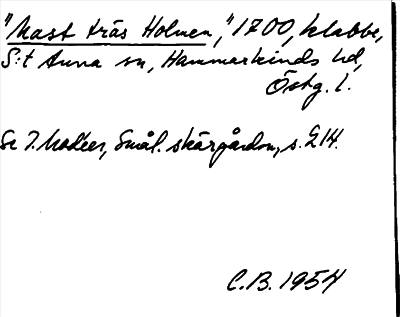 "Mast träs Holmen," 1700, klabbe,
S:t Anna sn, Hammarkinds hd,
Östg. l.
Se I. Modéer, Smål. skärgården, s. 214.
C.B. 1954